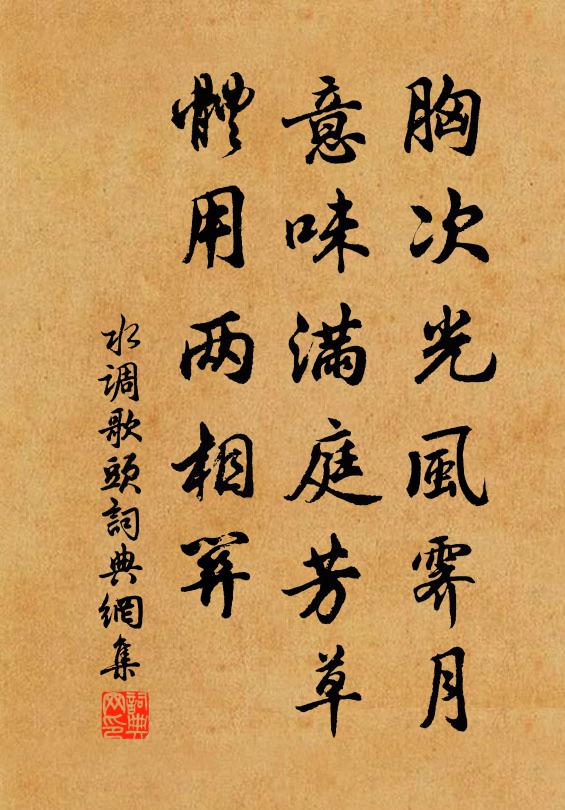 胸次光風霽月
意味滿庭芳草
體用两相
水調歌頭詞典網集
詞典网印